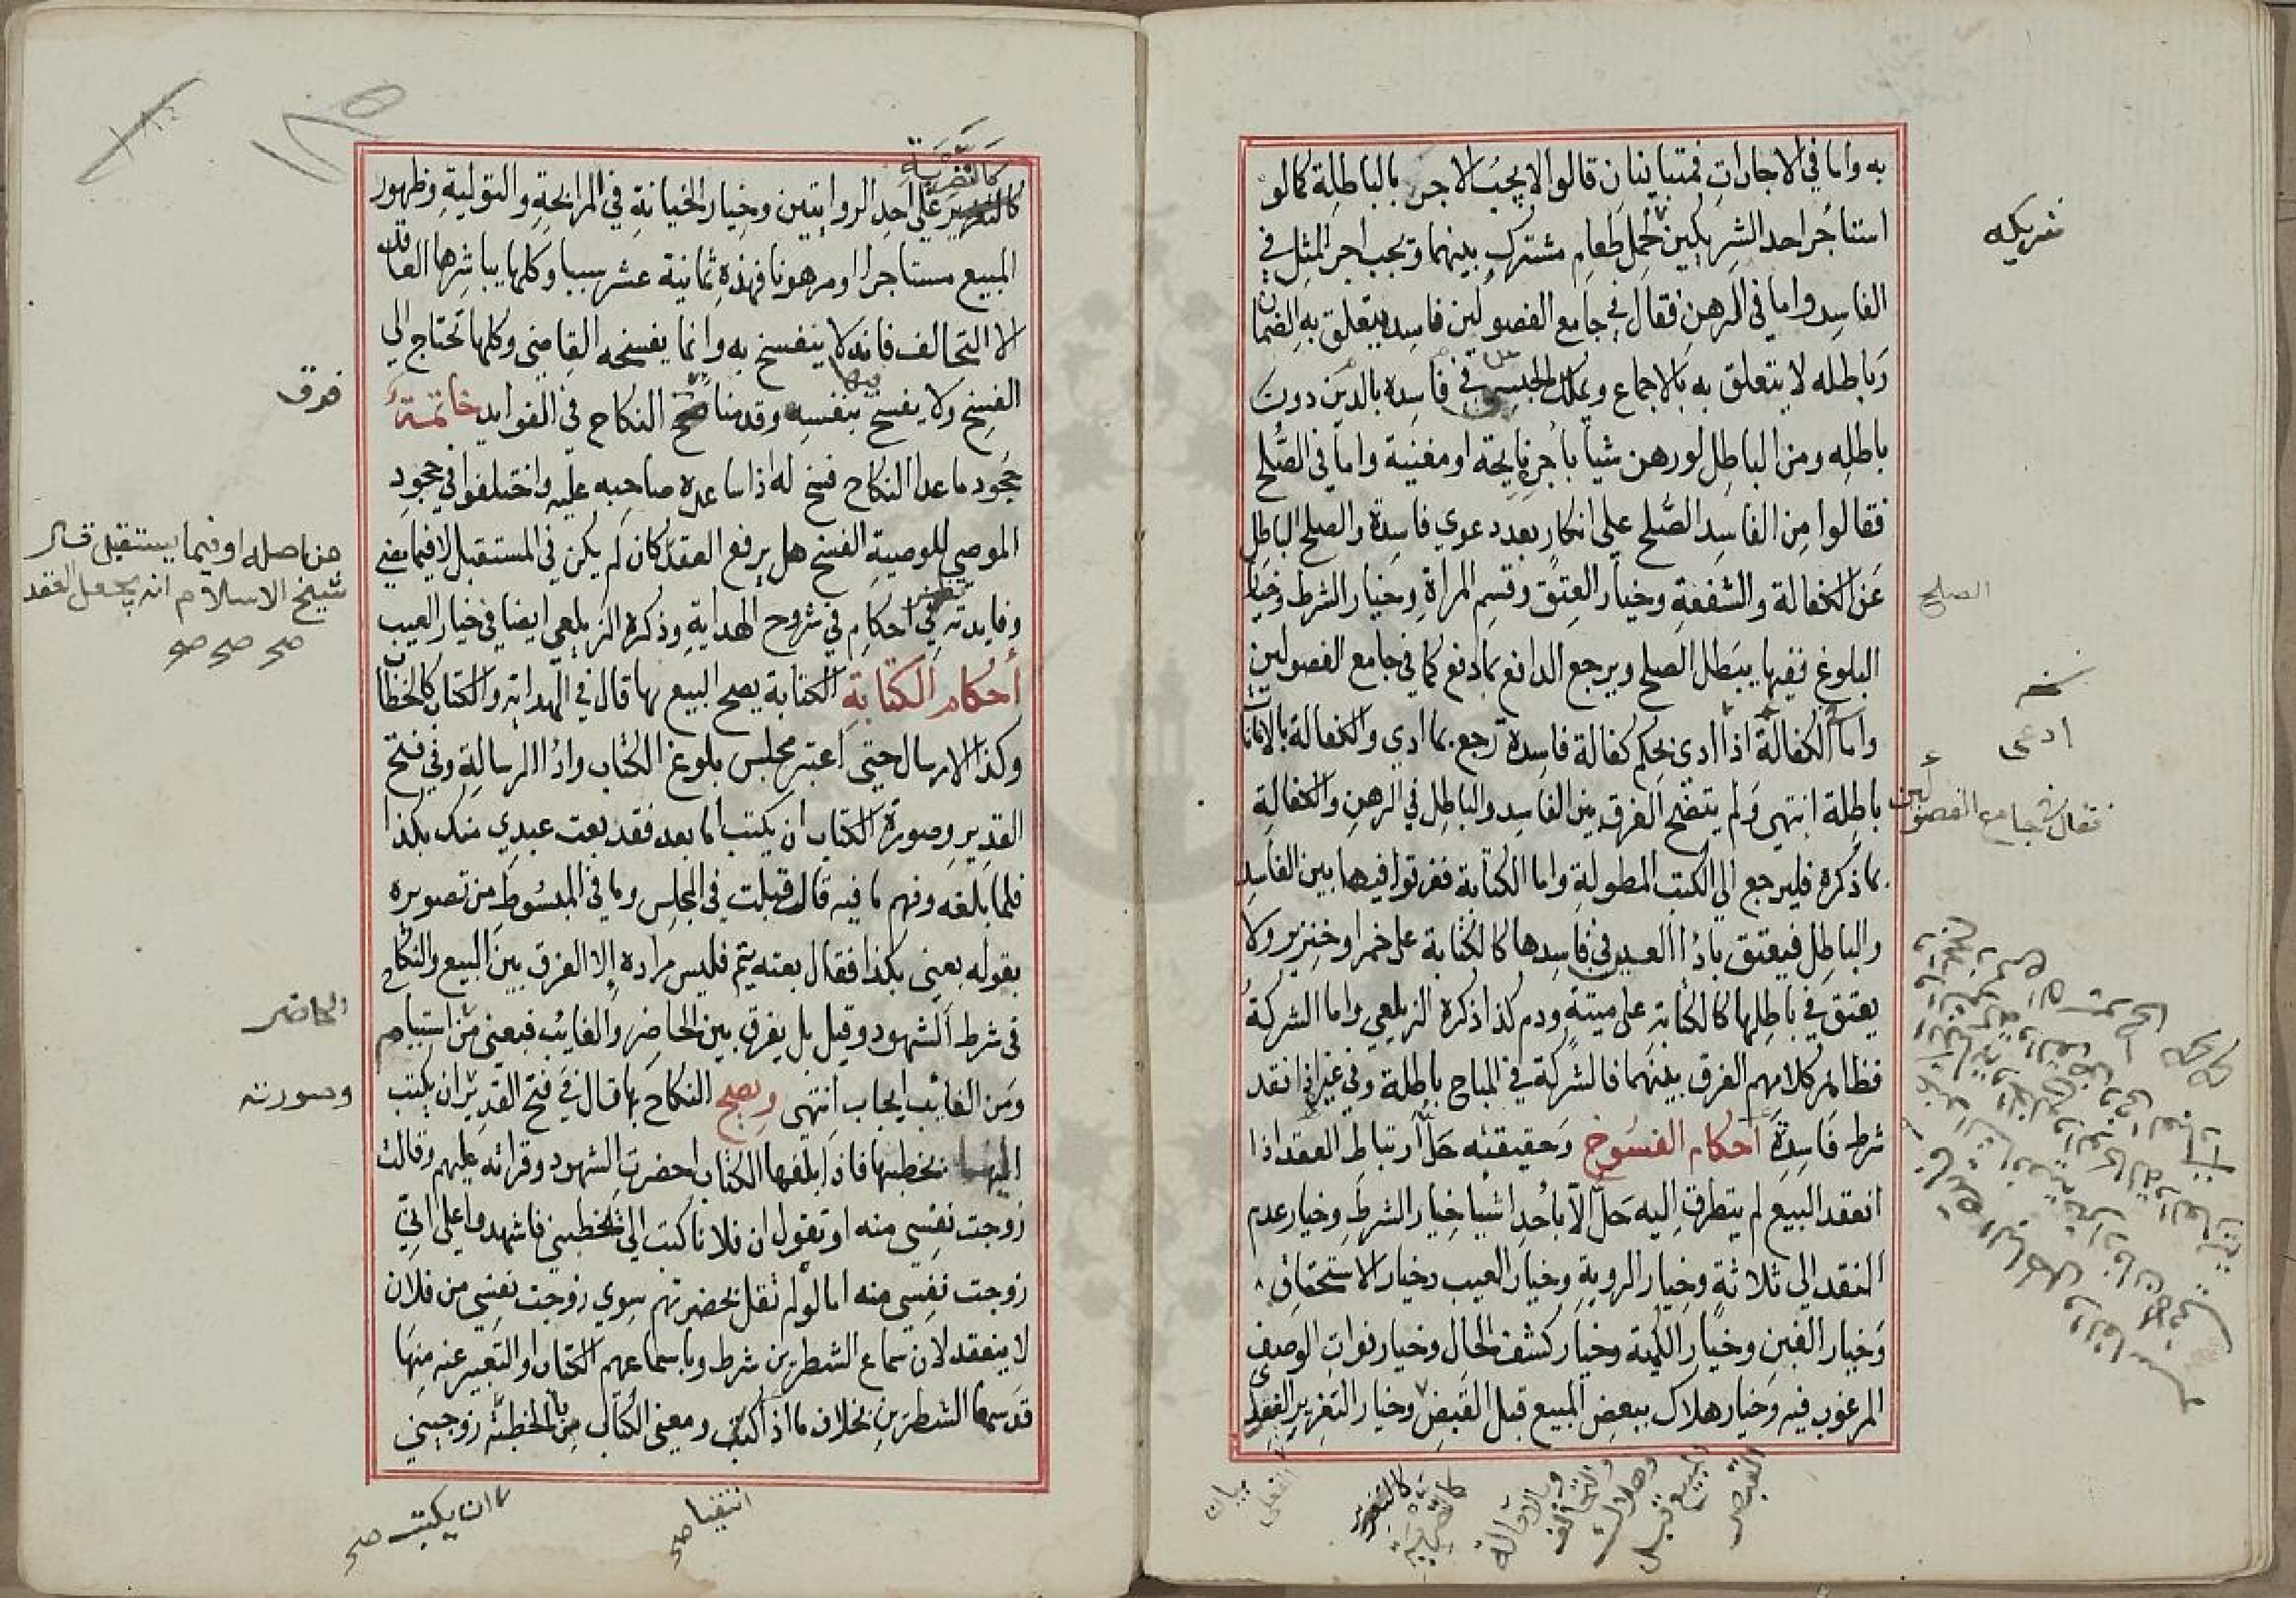 به واما في الاجارات فمتباينان قالوا لا يجب الاجر بالباطلة كما لو
استاجر احد الشريكين لحمل طعام مشترك بينهما ويجب اجر المثل في
الفاسد واما في الرهن فقال في جامع الفصولين فاسده يتعلق به الضمان
وباطله لا يتعلق به بالاجماع ويملك الحبس في فاسده بالدين دون
باطله ومن الباطل لو رهن شيا باجر نايحة او مغنية واما في الصلح
فقالوا من الفاسد الصلح على انكار بعد دعوي فاسدة والصلح الباطل
عن الكفالة والشفعة وخيار العتق وقسم المراة وخيار الشرط وخيار
البلوغ ففيها يبطل الصلح ويرجع الدافع بما دفع كما في جامع الفصولين
واما الكفالة اذا ادي بحكم كفالة فاسدة رجع بما ادي والكفالة بالامانات
باطلة انتهي ولم يتضح الفرق بين الفاسد والباطل في الرهن والكفالة
بما ذكره فليرجع الي الكتب المطولة واما الكتابة ففرقوا فيها بين الفاسد
والباطل فيعتق بادا العين في فاسدها كالكتابة على خمر او خنزير ولا
يعتق في باطلها كالكتابة على ميتة ودم كذا ذكره الزيلعي واما الشركة
فظاهر كلامهم الفرق بينهما فالشركة في المباح باطلة وفي غيره اذا فقد
شرط فاسدة احكام الفسوخ وحقيقته حل ارتباط العقد اذا
انعقد البيع لم يتطرق اليه حل الا باحد اشيا خيار الشرط وخيار عدم
النقد الي ثلاثة وخيار الروية وخيار العيب وخيار الاستحقاق
وخيار الغبن وخيار الكمية وخيار كشف الحال وخيار فوات الوصف
المرغوب فيه وخيار هلاك بعض المبيع قبل القبض وخيار التغرير الفعلي
شريكه
الصلح
ادعى
فقال في جامع الفصولين
بيان
الفعلي
كالتغرير
كالتصرية
وبالاقالة
والتحالف
وهلاك
المبيع قبل
القبض
كالتصرية
كالتغرير على احد الروايتين وخيار الخيانة في المرابحة والتولية وظهور
المبيع مستاجرا او مرهونا فهذه ثمانية عشر سببا وكلها يباشرها العاقد
الا التحالف فانه لا ينفسخ به وانما يفسخه القاضي وكلها تحتاج الي
الفسخ ولا ينفسخ بنفسه وقدمنا فسخ النكاح في الفوايد خاتمة
جحود ما عدا النكاح فسخ له اذا ساعده صاحبه عليه واختلفوا في جحود
الموصي للوصية الفسخ هل يرفع العقد كان لم يكن في المستقبل لا فيما مضي
وفايدته في احكام في شروح الهداية وذكره الزيلعي ايضا في خيار العيب
أحكام الكتابة الكتابة يصح البيع بها قال في الهداية والكتاب كالخطاب
وكذا الارسال حتي اعتبر مجلس بلوغ الكتاب وادا الرسالة وفي فتح
القدير وصورة الكتاب ان يكتب اما بعد فقد بعت عبدي منك بكذا
فلما بلغه وفهم ما فيه قال قبلت في المجلس وما في المبسوط من تصويره
بقوله بعني بكذا فقال بعته يتم فليس مراده إلا الفرق بين البيع والنكاح
في شرط الشهود وقيل بل يفرق بين الحاضر والغايب فبعني من استيام
ومن الغايب ايجاب انتهى ويصح النكاح بها قال في فتح القدير ان يكتب
اليها يخطبها فاذا بلغها الكتاب احضرت الشهود وقراته عليهم وقالت
زوجت نفسي منه او تقول ان فلانا كتب الي يخطبني فاشهدوا على اني
زوجت نفسي منه اما لو لم تقل بحضرتهم سوي زوجت نفسي من فلان
لا ينعقد لان سماع الشطرين شرط وباسماعهم الكتاب او التعبير عنه منها
قد سمعا الشطرين بخلاف ما اذا كتب ومعنى الكتاب من بالخطبة زوجيني
فرق
من اصله او فيما يستقبل قال
شيخ الاسلام انه يجعل العقد
صح صح صح
الحاضر
وصورته
ان يكتب صح
انتفيا صح